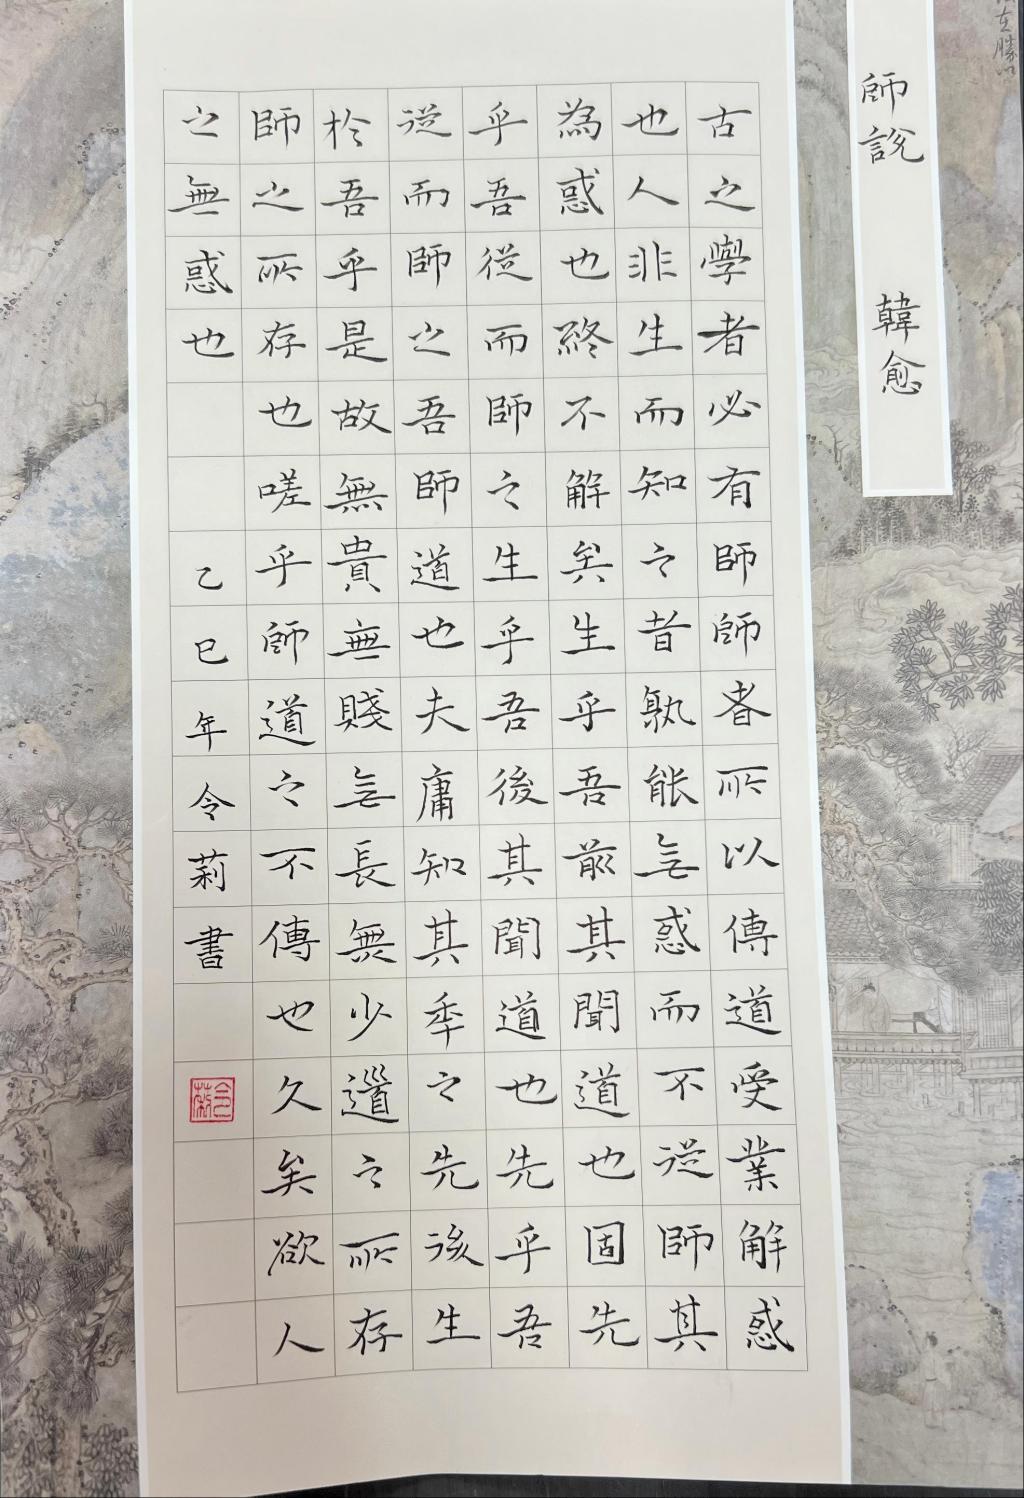 師說 韓愈
古之學者必有師師者所以傳道受業解惑
也人非生而知之者孰能無惑而不從師其
為惑也終不解矣生乎吾前其聞道也固先
乎吾從而師之生乎吾後其聞道也先乎吾
從而師之吾師道也夫庸知其年之先後生
於吾乎是故無貴無賤無長無少道之所存
師之所存也嗟乎師道之不傳也久矣欲人
之無惑也 乙巳年令莉書
令莉